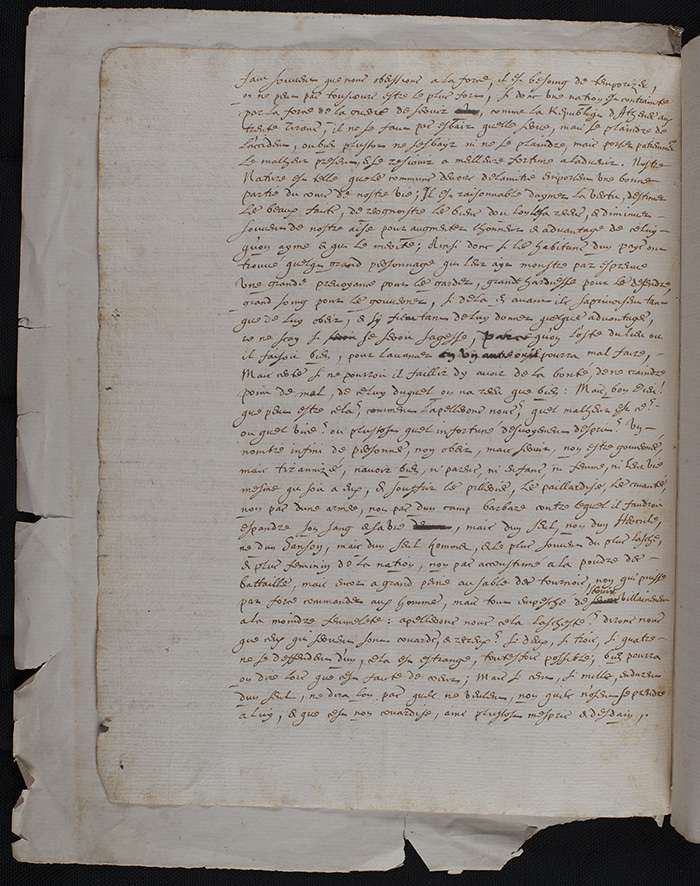 faut souvent que nous obeissions a la force, il est besoing de temporizer,
on ne peut pas tousiours estre le plus fort, Si donc une nation est contrainte
par la force de la guerre de servir, comme la Republique d'Athenes aux
trente tirans, il ne se faut pas esbair quelle serve, mais se plaindre de
l'accident, ou bien plustost ne s'esbayr ni ne se plaindre, mais porter patiemment
le malheur present, & se reserver a meilleure fortune a l'advenir. Nostre
Nature est telle que les communs devoirs de l'amitie emportent une bonne
partie du cours de nostre vie; Il est raisonnable d'aymer la vertu, d'estimer
les beaux faits, de recognoistre le bien dou lon l'a receu, & diminuer
souvent de nostre aise pour augmenter l'honneur & advantage de celuy
qu'on ayme & qui le merite; Ainsi donc si les habitans d'un pays ont
trouvé quelque grand personnage qui leur ayt monstré par espreuve
une grande prevoyance pour les garder, grande hardiesse pour les defendre,
grand soing pour les gouverner, si de la en avant ils s'aprivoisent tant
que de luy obeir, & s'y fient tant de luy donner quelque advantages,
je ne scay si se seroit sagesse, parce qu'on l'oste du lieu ou
il faisoit bien, pour l'avancer en un autre ou il pourra mal faire,
Mais certe si ne pourroit il faillir d'y avoir de la bonté, de ne craindre
point de mal, de celuy duquel on na receu que bien: Mais, bon Dieu!
que peut estre cela? comment l'apellerons nous? quel malheur est ce?
ou quel vice? ou plustost quel infortuné desvoyement d'esprit? Un
nombre infini de personnes, non obeir, mais servir, non estre gouvernés,
mais tirannizés, n'avoir bien, ni parens, ni enfans, ni femme, ni leur vie
mesme qui soit a eux, & souffrir les pilleries, les paillardises, les cruautés,
non pas d'une armee, non pas d'un camp barbare contre lequel il faudroit
espandre son sang & sa vie, mais d'un seul, non d'un Hercule,
ne d'un Sanson, mais d'un seul hommeau, & le plus souvent du plus lasche,
& plus feminin de la nation, non pas accoustumé a la poudre des
battailles, mais encor a grand peine au sable des tournois, non qui puisse
par force commander aux hommes, mais tout empesché de servir villainement
a la moindre femmelete: apellerons nous cela lascheté? dirons nous
que ceux qui servent sont couards & recreux? Si deux, si trois, si quatre
ne se deffendent d'un, cela est estrange, toutesfois possible, bien pourra
on dire lors que c'est faute de cœur; Mais si cent, si mille, endurent
d'un seul, ne dira lon pas quils ne veulent, non quils n'osent se prendre
a luy, & que c'est non couardise, ains plustost mespris & desdain,